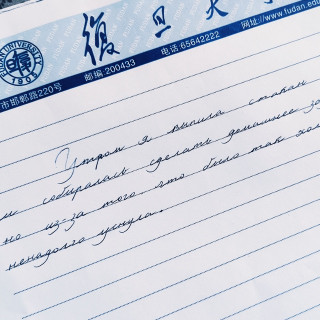 復旦大
FUDAN UNIVERSITY
1905
市邯郸路220号 邮编 200433 电话 65642222 网址://www.fudan.edu
Утром я выпила стакан
и собиралась сделать домашнее за
но из-за того, что было так хо
ненадолго уснула.